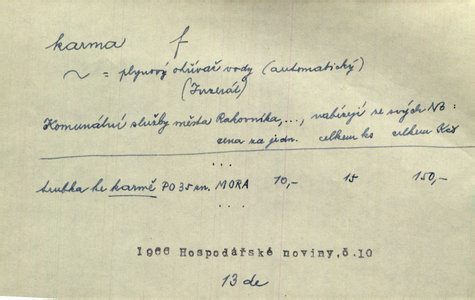 karma f
~ = plynový ohřívač vody (automatický)
(Inzerát)
Komunální služby města Rakovníka,..., nabízejí ze svých NB:
cena za jedn. celkem ks celkem Kčs
...
trubka ke karmě PO 35 sm. MORA 10,- 15 150,-
...
1966 Hospodářské noviny,č.10
13 de